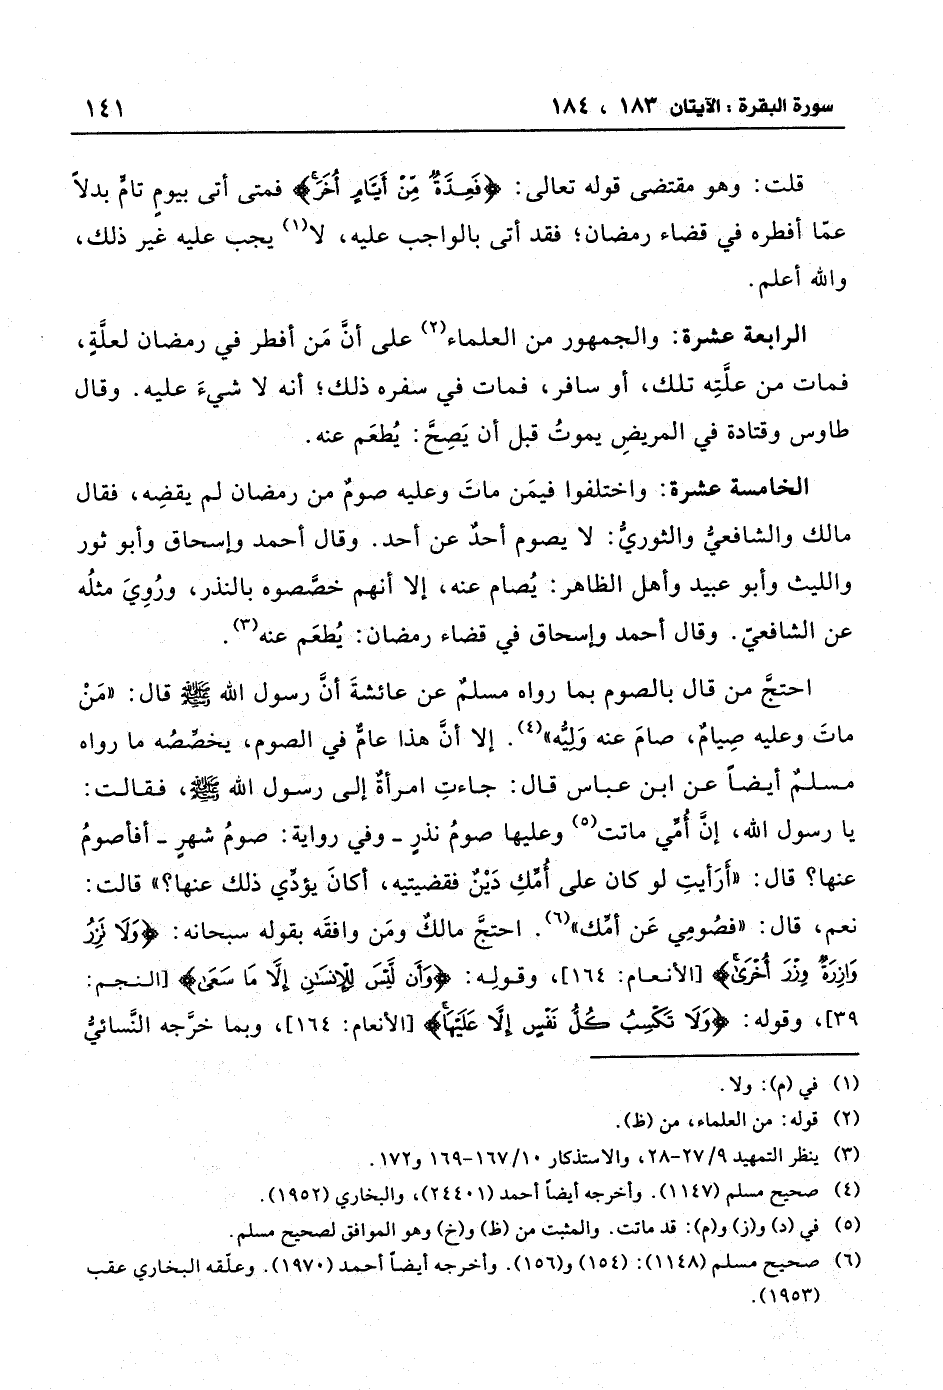 سورة البقرة : الآيتان ١٨٣ ، ١٨٤ ١٤١
قلت: وهو مقتضى قوله تعالى: ﴿فَعِدَّةٌ مِّنْ أَيَّامٍ أُخَرَ﴾ فمتى أتى بيومٍ تامٍّ بدلاً
عمّا أفطره في قضاء رمضان؛ فقد أتى بالواجب عليه، لا(١) يجب عليه غير ذلك،
والله أعلم.
الرابعة عشرة: والجمهور من العلماء(٢) على أنَّ مَن أفطر في رمضان لعلَّةٍ،
فمات من علَّتِه تلك، أو سافر، فمات في سفره ذلك؛ أنه لا شيءَ عليه. وقال
طاوس وقتادة في المريضِ يموتُ قبل أن يَصِحَّ: يُطعَم عنه.
الخامسة عشرة: واختلفوا فيمَن ماتَ وعليه صومٌ من رمضان لم يقضِه، فقال
مالك والشافعيُّ والثوريُّ: لا يصوم أحدٌ عن أحد. وقال أحمد وإسحاق وأبو ثور
والليث وأبو عبيد وأهل الظاهر: يُصام عنه، إلا أنهم خصَّصوه بالنذر، ورُوِيَ مثلُه
عن الشافعيّ. وقال أحمد وإسحاق في قضاء رمضان: يُطعَم عنه(٣).
احتجَّ من قال بالصوم بما رواه مسلمٌ عن عائشةَ أنَّ رسول الله ﷺ قال: «مَنْ
ماتَ وعليه صِيامٌ، صامَ عنه وَلِيُّه»(٤). إلا أنَّ هذا عامٌّ في الصوم، يخصِّصُه ما رواه
مسلمٌ أيضاً عن ابن عباس قال: جاءتِ امرأةٌ إلى رسول الله ﷺ، فقالت:
يا رسول الله، إنَّ أُمِّي ماتت(٥) وعليها صومُ نذرٍ ـ وفي رواية: صومُ شهرٍ ـ أفأصومُ
عنها؟ قال: «أَرَأيتِ لو كان على أُمِّكِ دَيْنٌ فقضيتيه، أكانَ يؤدِّي ذلك عنها؟» قالت:
نعم، قال: «فصُومِي عَن أمِّك»(٦). احتجَّ مالكٌ ومَن وافقَه بقوله سبحانه: ﴿وَلَا نَزِرُ
وَازِرَةٌ وِزْرَ أُخْرَىٰ﴾ [الأنعام: ١٦٤]، وقولِه: ﴿وَأَن لَّيْسَ لِلْإِنسَانِ إِلَّا مَا سَعَىٰ﴾ [النجم:
٣٩]، وقوله: ﴿وَلَا تَكْسِبُ كُلُّ نَفْسٍ إِلَّا عَلَيْهَا﴾ [الأنعام: ١٦٤]، وبما خرَّجه النَّسائيُّ
(١) في (م): ولا.
(٢) قوله: من العلماء، من (ظ).
(٣) ينظر التمهيد ٢٧/٩-٢٨، والاستذكار ١٦٧/١٠-١٦٩ و١٧٢.
(٤) صحيح مسلم (١١٤٧). وأخرجه أيضاً أحمد (٢٤٤٠١)، والبخاري (١٩٥٢).
(٥) في (د) و(ز) و(م): قد ماتت. والمثبت من (ظ) و(خ) وهو الموافق لصحيح مسلم.
(٦) صحيح مسلم (١١٤٨): (١٥٤) و(١٥٦). وأخرجه أيضاً أحمد (١٩٧٠). وعلّقه البخاري عقب
(١٩٥٣).